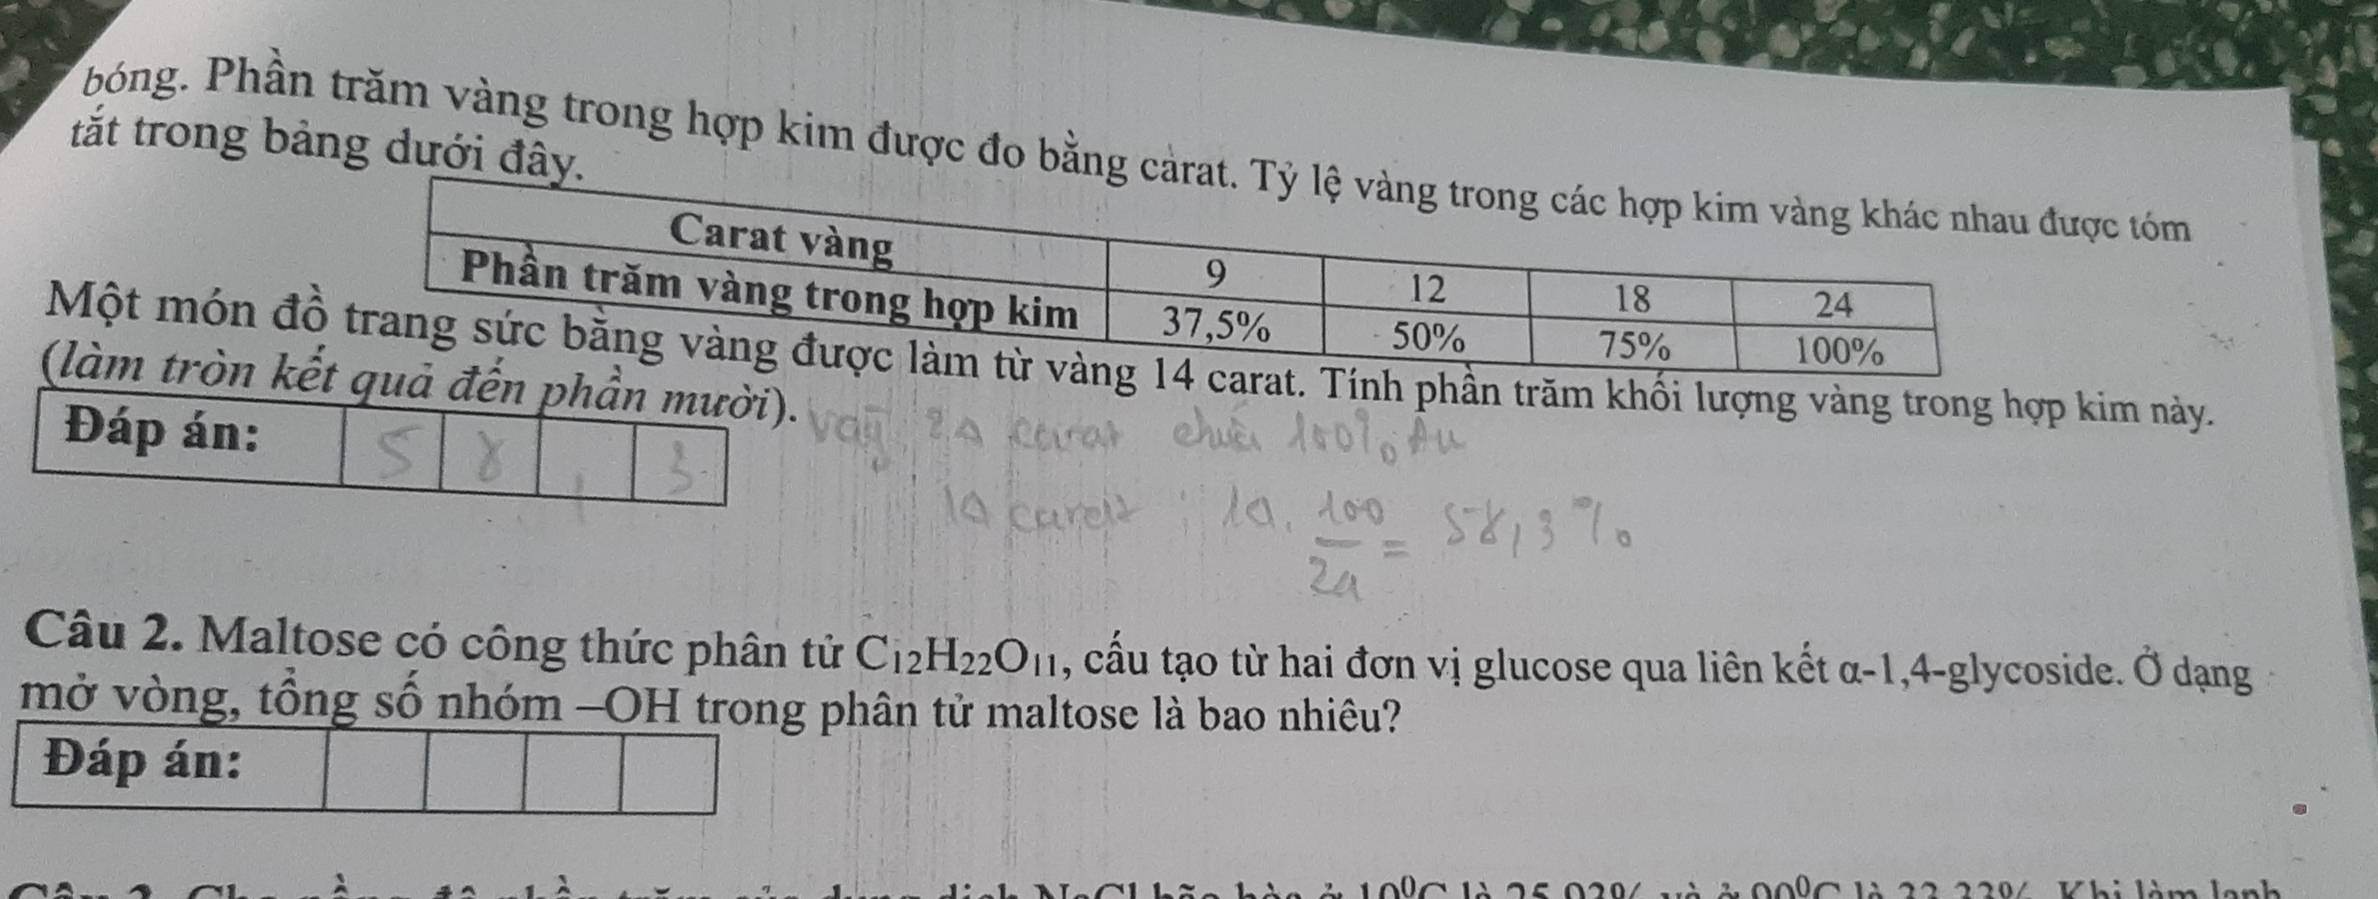 bóng. Phần trăm vàng trong hợp kim được đo bằng carat. Tỷ lệ vàng trong các hợp kim vàng khác nhau được tóm
tắt trong bảng dưới đây.
Carat vàng 9 12 18 24
Phần trăm vàng trong hợp kim 37,5% 50% 75% 100%
Một món đồ trang sức bằng vàng được làm từ vàng 14 carat. Tính phần trăm khối lượng vàng trong hợp kim này.
(làm tròn kết quả đến phần mười).
vàng 24 carat chứa 100% Au
Đáp án: 5 8 , 3
14 carat : 14. 100/24 = 58,3%
Câu 2. Maltose có công thức phân tử C12H22O11, cấu tạo từ hai đơn vị glucose qua liên kết α-1,4-glycoside. Ở dạng
mở vòng, tổng số nhóm –OH trong phân tử maltose là bao nhiêu?
Đáp án: